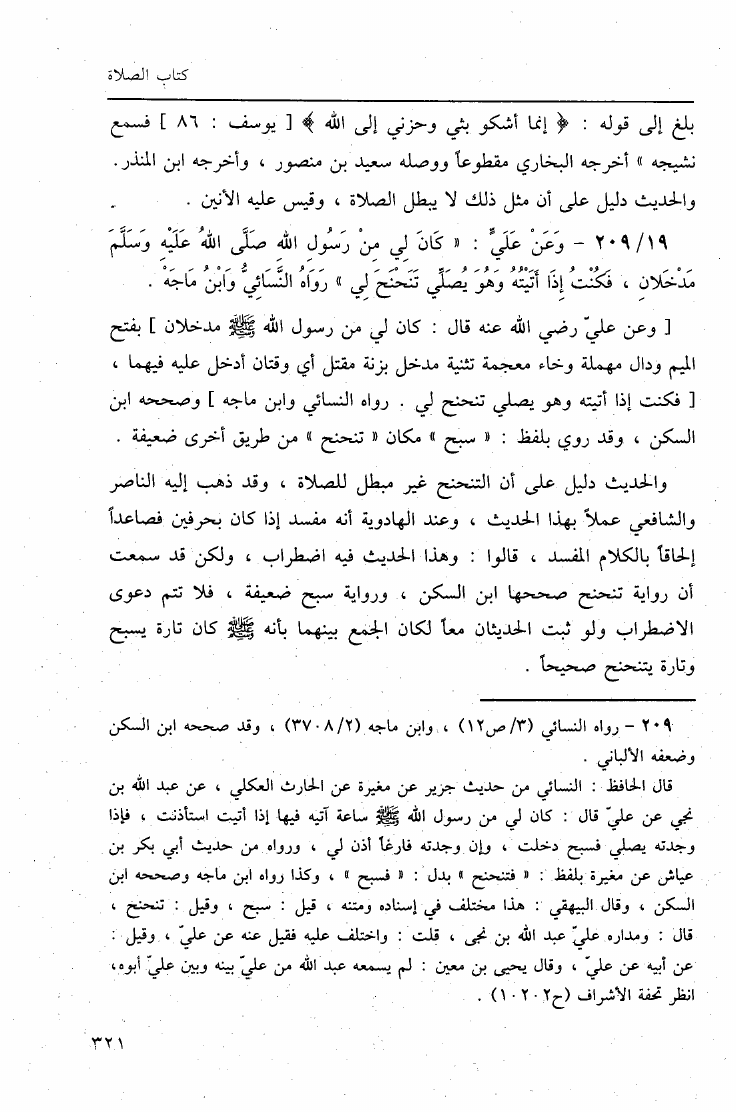 كتاب الصلاة
بلغ إلى قوله : ﴿ إنما أشكو بثي وحزني إلى الله ﴾ [ يوسف : ٨٦ ] فسمع
نشيجه » أخرجه البخاري مقطوعاً ووصله سعيد بن منصور ، وأخرجه ابن المنذر.
والحديث دليل على أن مثل ذلك لا يبطل الصلاة ، وقيس عليه الأنين .
٢٠٩/١٩ - وَعَنْ عَلَيٍّ : « كَانَ لِي مِنْ رَسُولِ اللهِ صَلَّى اللهُ عَلَيْهِ وَسَلَّمَ
مَدْخَلَانِ ، فَكُنْتُ إِذَا أَتَيْتُهُ وَهُوَ يُصَلِّي تَنَحْنَحَ لِي » رَوَاهُ النَّسَائِيُّ وَابْنُ مَاجَهْ .
[ وعن عليّ رضي الله عنه قال : كان لي من رسول الله ﷺ مدخلان ] بفتح
الميم ودال مهملة وخاء معجمة تثنية مدخل بزنة مقتل أي وقتان أدخل عليه فيهما ،
[ فكنت إذا أتيته وهو يصلي تنحنح لي . رواه النسائي وابن ماجه ] وصححه ابن
السكن ، وقد روي بلفظ : « سبح » مكان « تنحنح » من طريق أخرى ضعيفة .
والحديث دليل على أن التنحنح غير مبطل للصلاة ، وقد ذهب إليه الناصر
والشافعي عملاً بهذا الحديث ، وعند الهادوية أنه مفسد إذا كان بحرفين فصاعداً
إلحاقاً بالكلام المفسد ، قالوا : وهذا الحديث فيه اضطراب ، ولكن قد سمعت
أن رواية تنحنح صححها ابن السكن ، ورواية سبح ضعيفة ، فلا تتم دعوى
الاضطراب ولو ثبت الحديثان معاً لكان الجمع بينهما بأنه ﷺ كان تارة يسبح
وتارة يتنحنح صحيحاً .
٢٠٩ - رواه النسائي (٣/ص١٢) ، وابن ماجه (٣٧٠٨/٢) ، وقد صححه ابن السكن
وضعفه الألباني .
قال الحافظ : النسائي من حديث جزير عن مغيرة عن الحارث العكلي ، عن عبد الله بن
نجي عن عليّ قال : كان لي من رسول الله ﷺ ساعة آتيه فيها إذا أتيت استأذنت ، فإذا
وجدته يصلي فسبح دخلت ، وإن وجدته فارغاً أذن لي ، ورواه من حديث أبي بكر بن
عياش عن مغيرة بلفظ : « فتنحنح » بدل : « فسبح » ، وكذا رواه ابن ماجه وصححه ابن
السكن ، وقال البيهقي : هذا مختلف في إسناده ومتنه ، قيل : سبح ، وقيل : تنحنح ،
قال : ومداره عليّ عبد الله بن نجى ، قلت : واختلف عليه فقيل عنه عن عليّ ، وقيل :
عن أبيه عن عليّ ، وقال يحيى بن معين : لم يسمعه عبد الله من عليّ بينه وبين عليّ أبوه،
انظر تحفة الأشراف (ح١٠٢٠٢) .
٣٢١